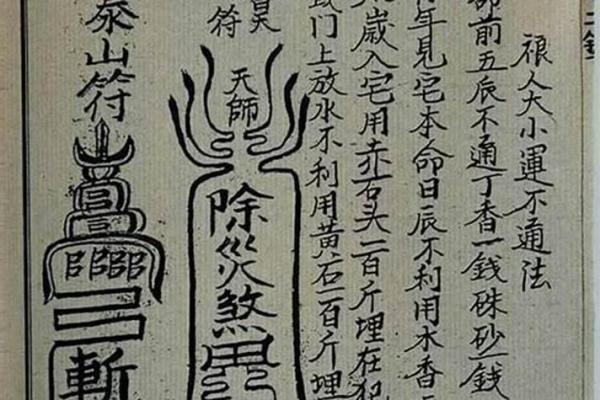 人大小運不通法
前五辰不通丁香一錢硃砂一錢
年見宅本命日辰不利用木香
歲入宅用赤石头一百斤埋在犯
門上放水不利用黃石一百斤埋
昊
符
天師
除災煞
泰山符
斬